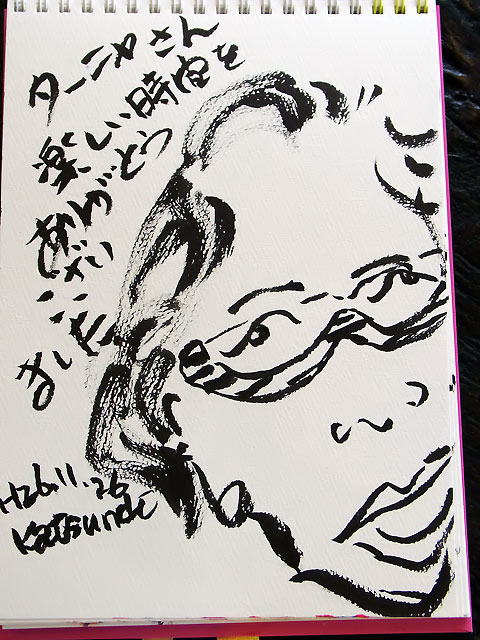 ターニャさん
楽しい時間を
ありがとう
ござい
ました
H26.11.26
Katsunori